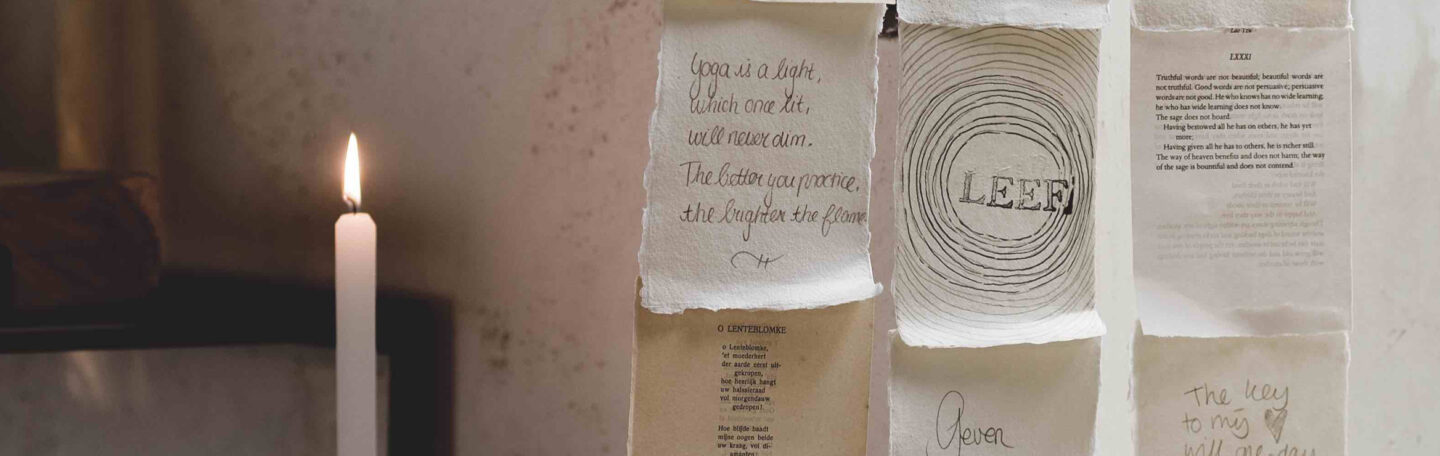 Yoga is a light,
which once lit,
will never dim.
The better you practice,
the brighter the flame
O LENTEBLOMKE
o Lenteblomke,
'et moederhert
der aarde eerst uit-
gekropen,
hoe heerlijk hangt
uw halssieraad
vol morgendauw
gedropen!
Hoe blijde baadt
mijne oogen beide
uw kraag, vol di-
amanten
LEEF
Geven
Lao Tzu
LXXXI
Truthful words are not beautiful; beautiful words are
not truthful. Good words are not persuasive; persuasive
words are not good. He who knows has no wide learning;
he who has wide learning does not know.
The sage does not hoard.
Having bestowed all he has on others, he has yet
more;
Having given all he has to others, he is richer still.
The way of heaven benefits and does not harm; the way
of the sage is bountiful and does not contend.
The key
to my
will one day